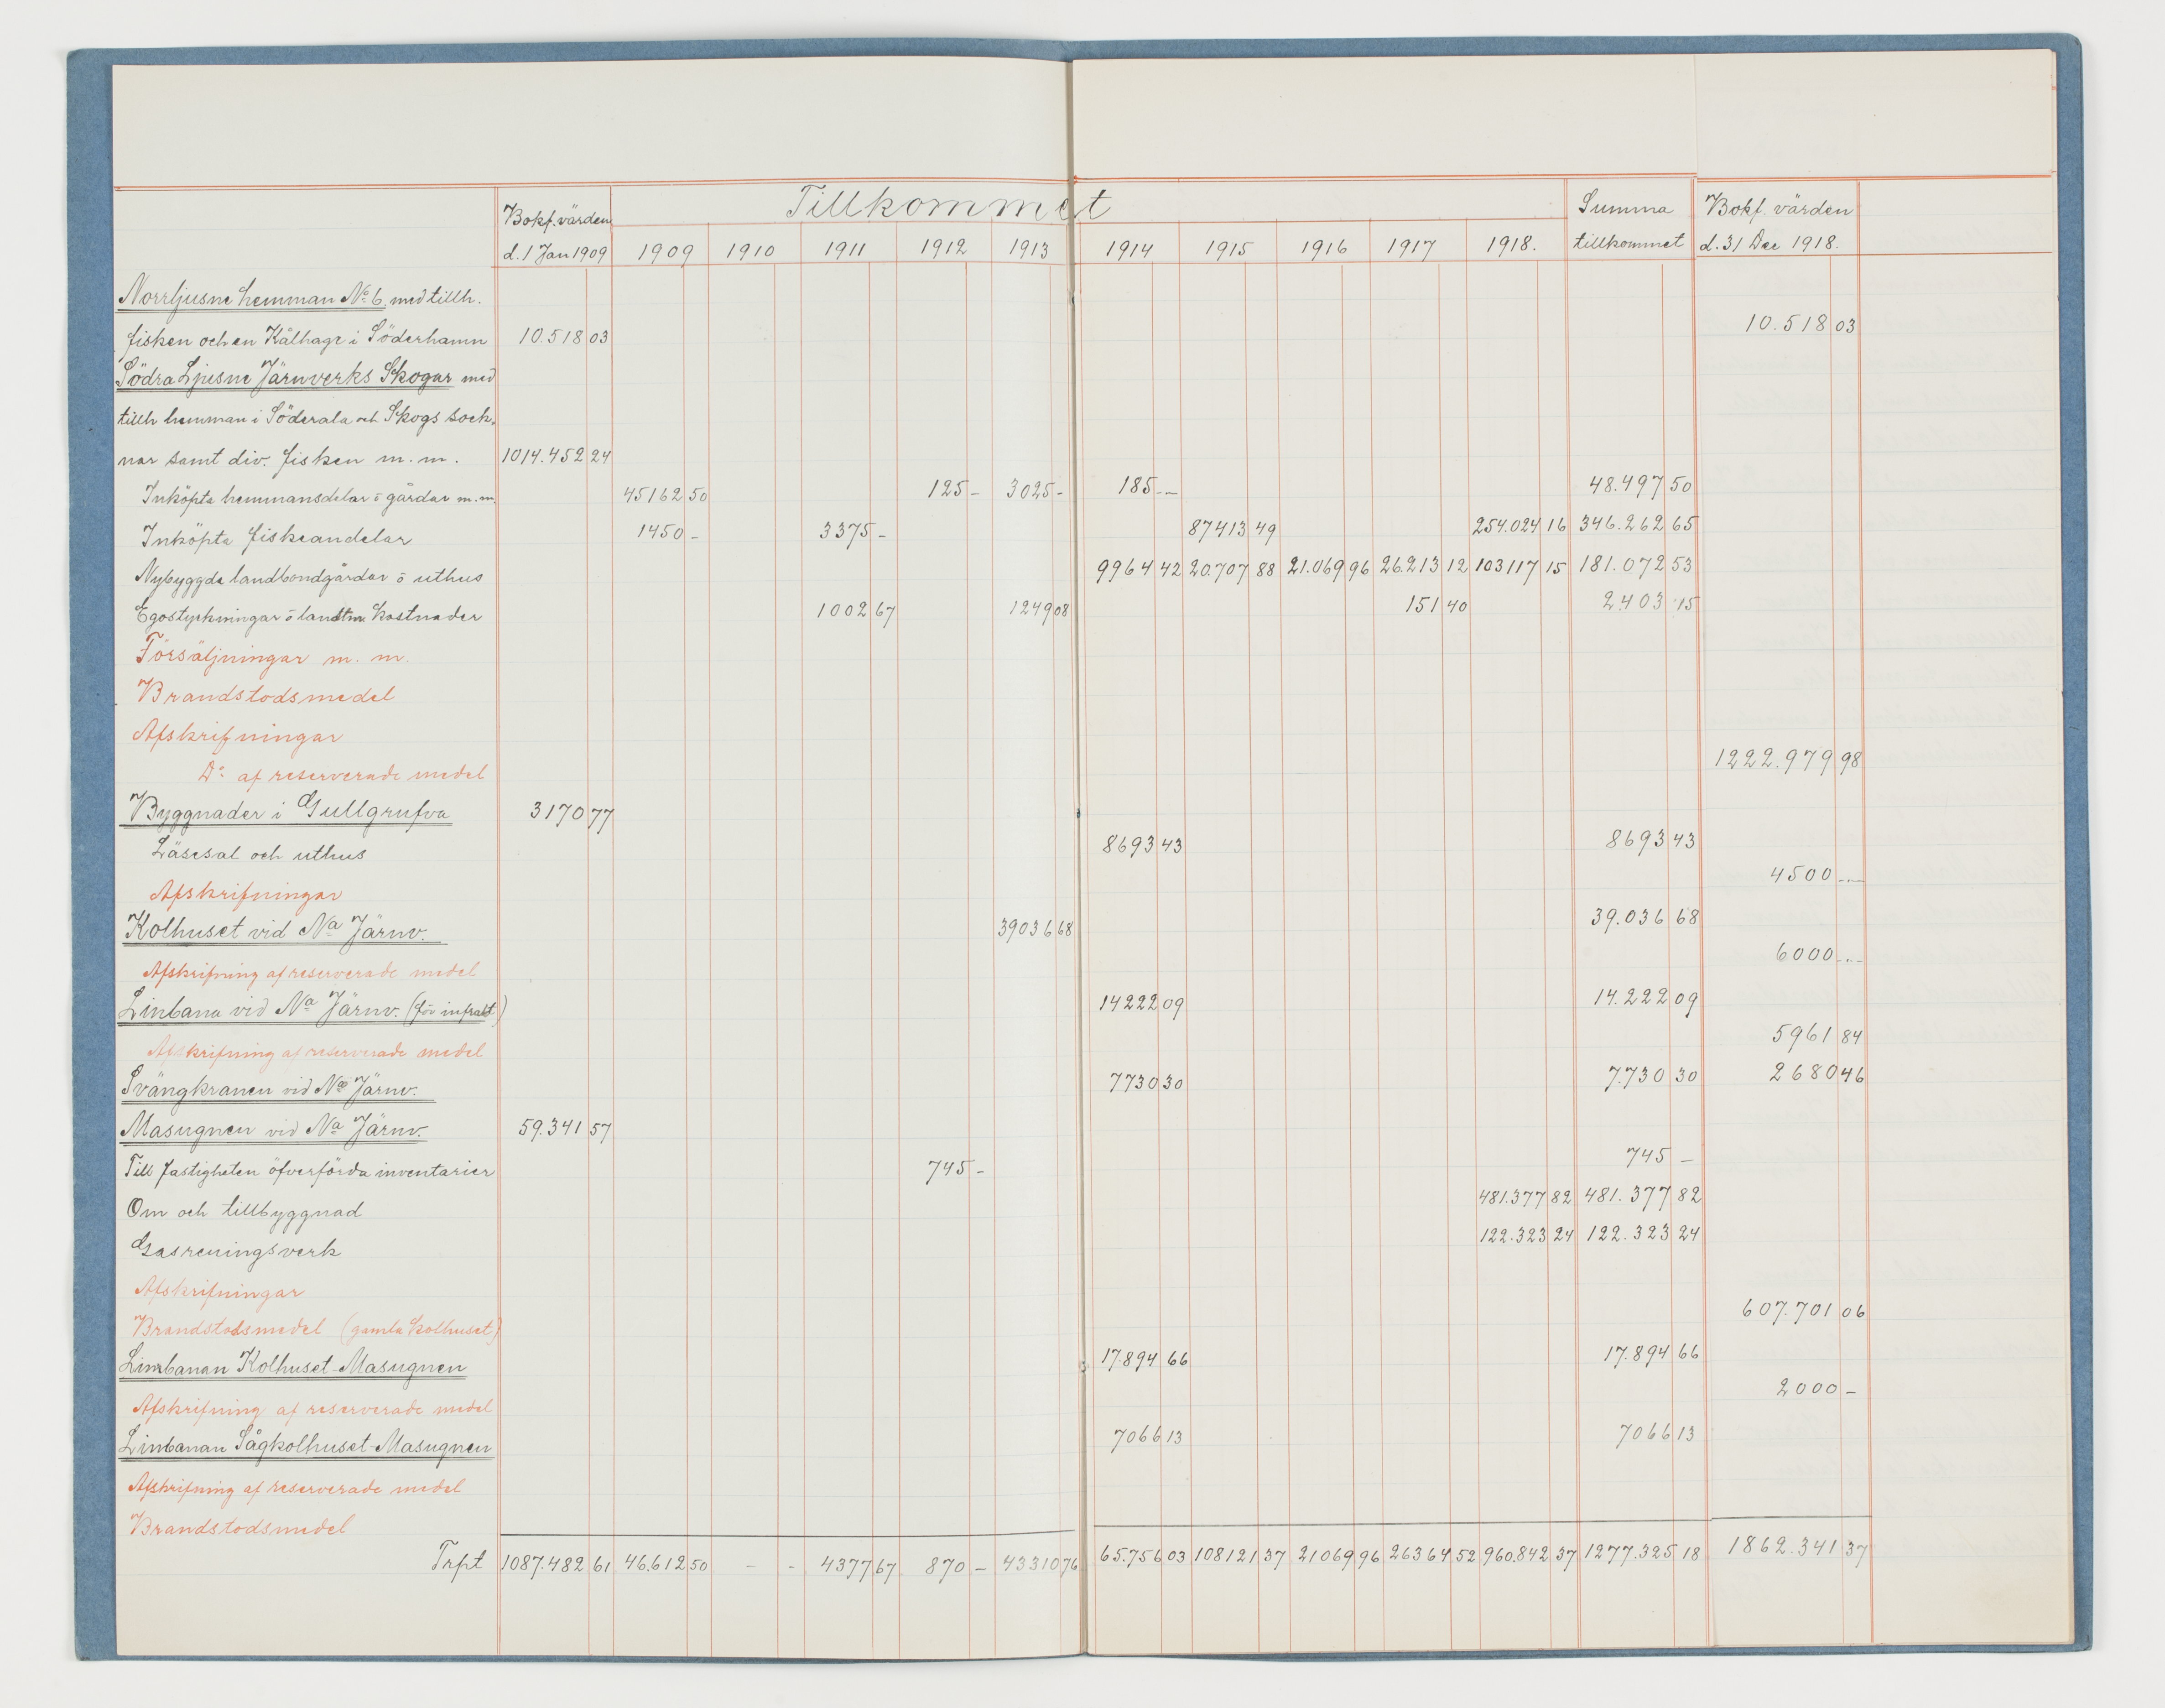 Tillkommet
Bokf. värden Summa Bokf. värden
d. 1 Jan 1909 1909 1910 1911 1912 1913 1914 1915 1916 1917 1918. tillkommet d. 31 Dec 1918.
Norrljusne hemman No 6 med tillh.
fisken och en Kålhage i Söderhamn 10.518 03 10.518 03
Södra Ljusne Järnverks Skogar med
tillh hemman i Söderala och Skogs sock-
nar samt div. fisken m. m. 1014.452 24
Inköpta hemmansdelar o gårdar m. m. 45162 50 125 - 3025 - 185 -- 48.497 50
Inköpta fiskeandelar 1450 - 3375 - 87413 49 254.024 16 346.262 65
Nybyggda landbondgårdar o uthus 9964 42 20.707 88 21.069 96 26.213 12 103117 15 181.072 53
Egostyckningar o landtm. Kostnader 1002 67 1249 08 151 40 2.403 15
Försäljningar m. m.
Brandstodsmedel
Afskrifningar
Do af reserverade medel 1222.979 98
Byggnader i Gullgrufva 3170 77
Läsesal och uthus 8693 43 8693 43
Afskrifningar 4500 --
Kolhuset vid Na Järnv. 39036 68 39.036 68
Afskrifning af reserverade medel 6000 --
Linbana vid Na Järnv. (för infrakt) 14222 09 14.222 09
Afskrifning af reserverade medel 5961 84
Svängkranen vid Na Järnv. 7730 30 7.730 30 2680 46
Masugnen vid Na Järnv. 59.341 57
Till fastigheten öfverförda inventarier 745 - 745 -
Om och tillbyggnad 481.377 82 481.377 82
Gasreningsverk 122.323 24 122.323 24
Afskrifningar
Brandstodsmedel (gamla Kolhuset) 607.701 06
Linbanan Kolhuset-Masugnen 17.894 66 17.894 66
Afskrifning af reserverade medel 2000 -
Linbanan Sågkolhuset-Masugnen 7066 13 7066 13
Afskrifning af reserverade medel
Brandstodsmedel
Trpt 1087.482 61 46.612 50 - - 4377 67 870 - 43310 76 65.756 03 108121 37 21069 96 26364 52 960.842 37 1277.325 18 1862.341 37